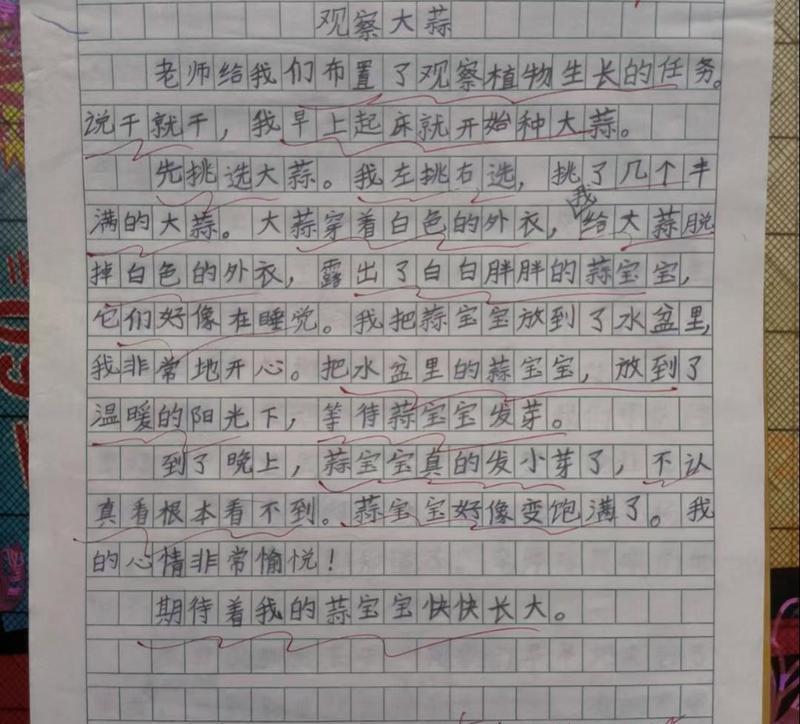 观察大蒜
老师给我们布置了观察植物生长的任务。
说干就干，我早上起床就开始种大蒜。
先挑选大蒜。我左挑右选，挑了几个丰
满的大蒜。大蒜穿着白色的外衣，我给大蒜脱
掉白色的外衣，露出了白白胖胖的蒜宝宝，
它们好像在睡觉。我把蒜宝宝放到了水盆里，
我非常地开心。把水盆里的蒜宝宝，放到了
温暖的阳光下，等待蒜宝宝发芽。
到了晚上，蒜宝宝真的发小芽了，不认
真看根本看不到。蒜宝宝好像变饱满了。我
的心情非常愉悦！
期待着我的蒜宝宝快快长大。